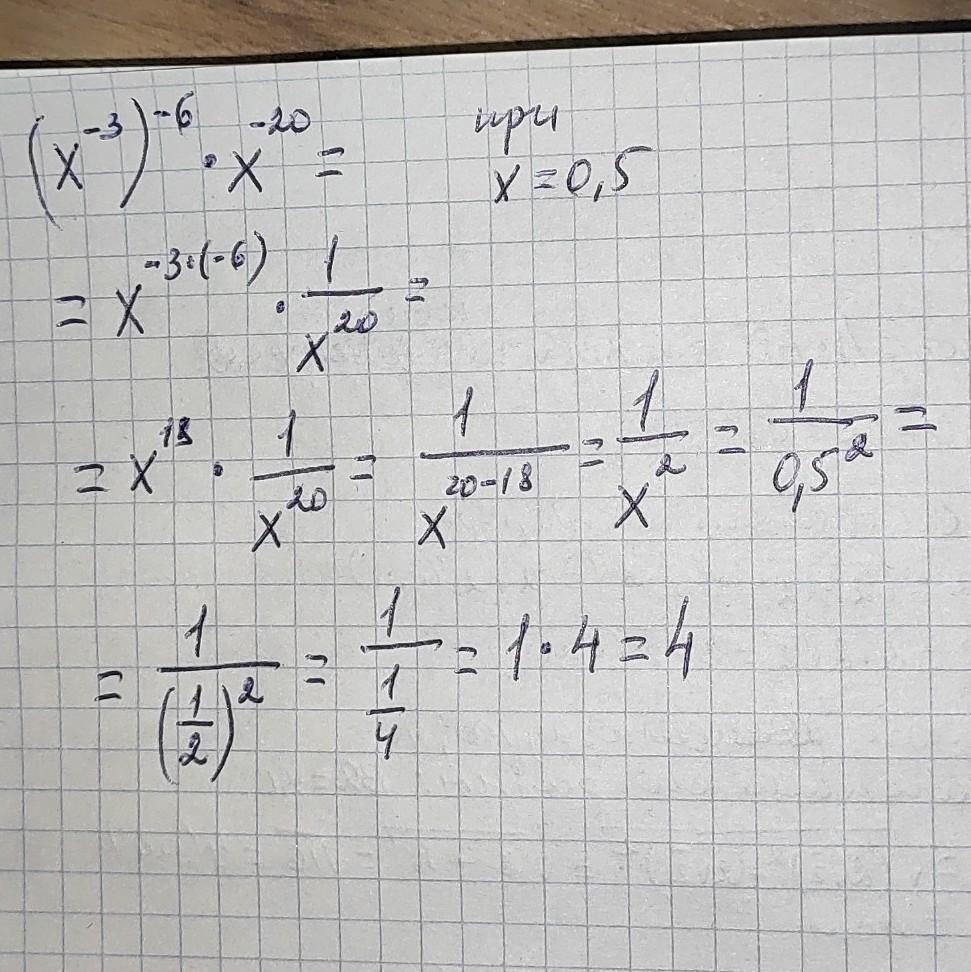 (x⁻³)⁻⁶ · x⁻²⁰ = при
x = 0,5
= x⁻³·⁽⁻⁶⁾ · 1/x²⁰ =
= x¹⁸ · 1/x²⁰ = 1/x²⁰⁻¹⁸ = 1/x² = 1/0,5² =
= 1/(1/2)² = 1/(1/4) = 1·4 = 4